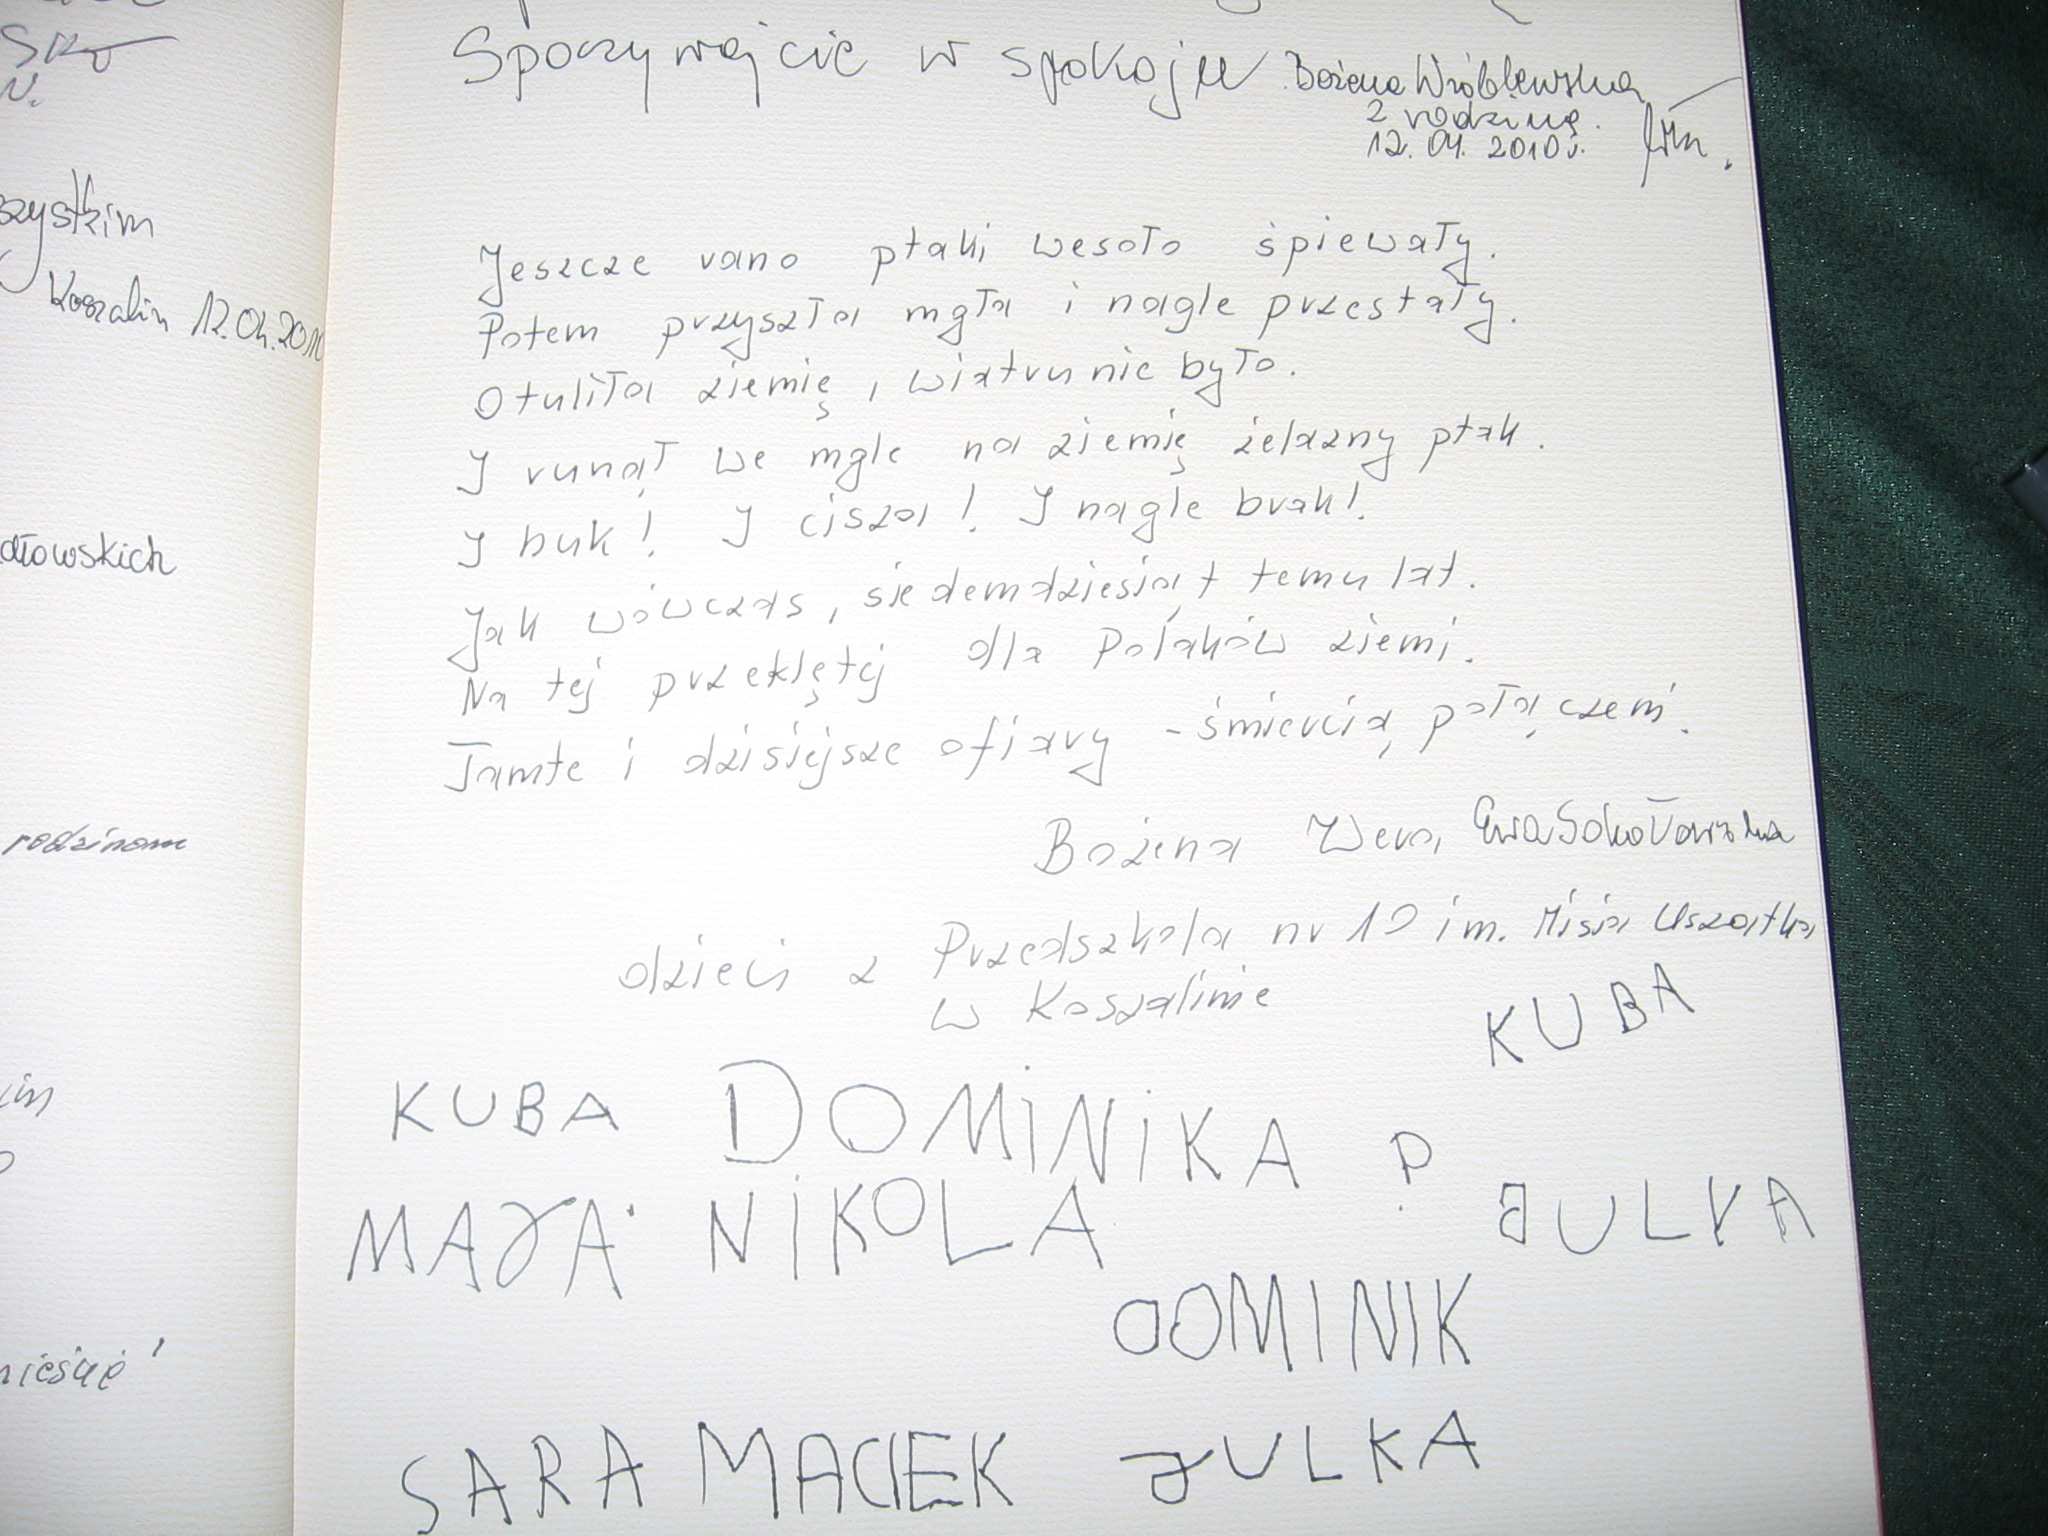 szystkim
Koszalin 12.04.2010
dłowskich
rodzinom
Spoczywajcie w spokoju Bożena Wróblewska
z rodziną.
12.04.2010r.
Jeszcze rano ptaki wesoło śpiewały.
Potem przyszła mgła i nagle przestały.
Otuliła ziemię, wiatru nie było.
I runął we mgle na ziemię żelazny ptak.
I huk! I cisza! I nagle brak!
Jak wówczas, siedemdziesiąt temu lat.
Na tej przeklętej dla Polaków ziemi.
Tamte i dzisiejsze ofiary - śmiercią połączeni.
Bożena Wera, Ewa Sokołowska
dzieci z Przedszkola nr 10 im. Misia Uszatka
w Koszalinie
KUBA
KUBA DOMINIKA P
MAJA NIKOLA JULKA
DOMINIK
SARA MACIEK JULKA